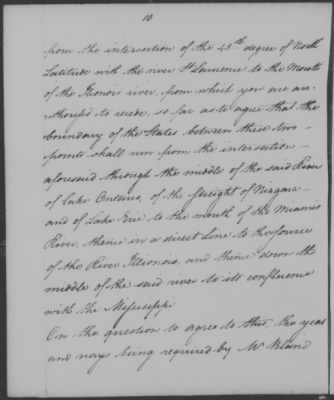 10
from the intersection of the 45th degree of North
Latitude with the river St Laurence to the Mouth
of the Ilionois river, from which you are au-
-thorised to recede, so far as to agree that the
boundary of the States between these two
points shall run from the intersection
aforesaid through the middle of the said River
of Lake Ontario, of the streight of Niagara
and of Lake Erie to the mouth of the Miamis
River, thence in a direct Line to the source
of the River Illionois, and thence down the
middle of the said river to its confluence
with the Mississippi
On the question to agree to this, the yeas
and nays being required by Mr Bland